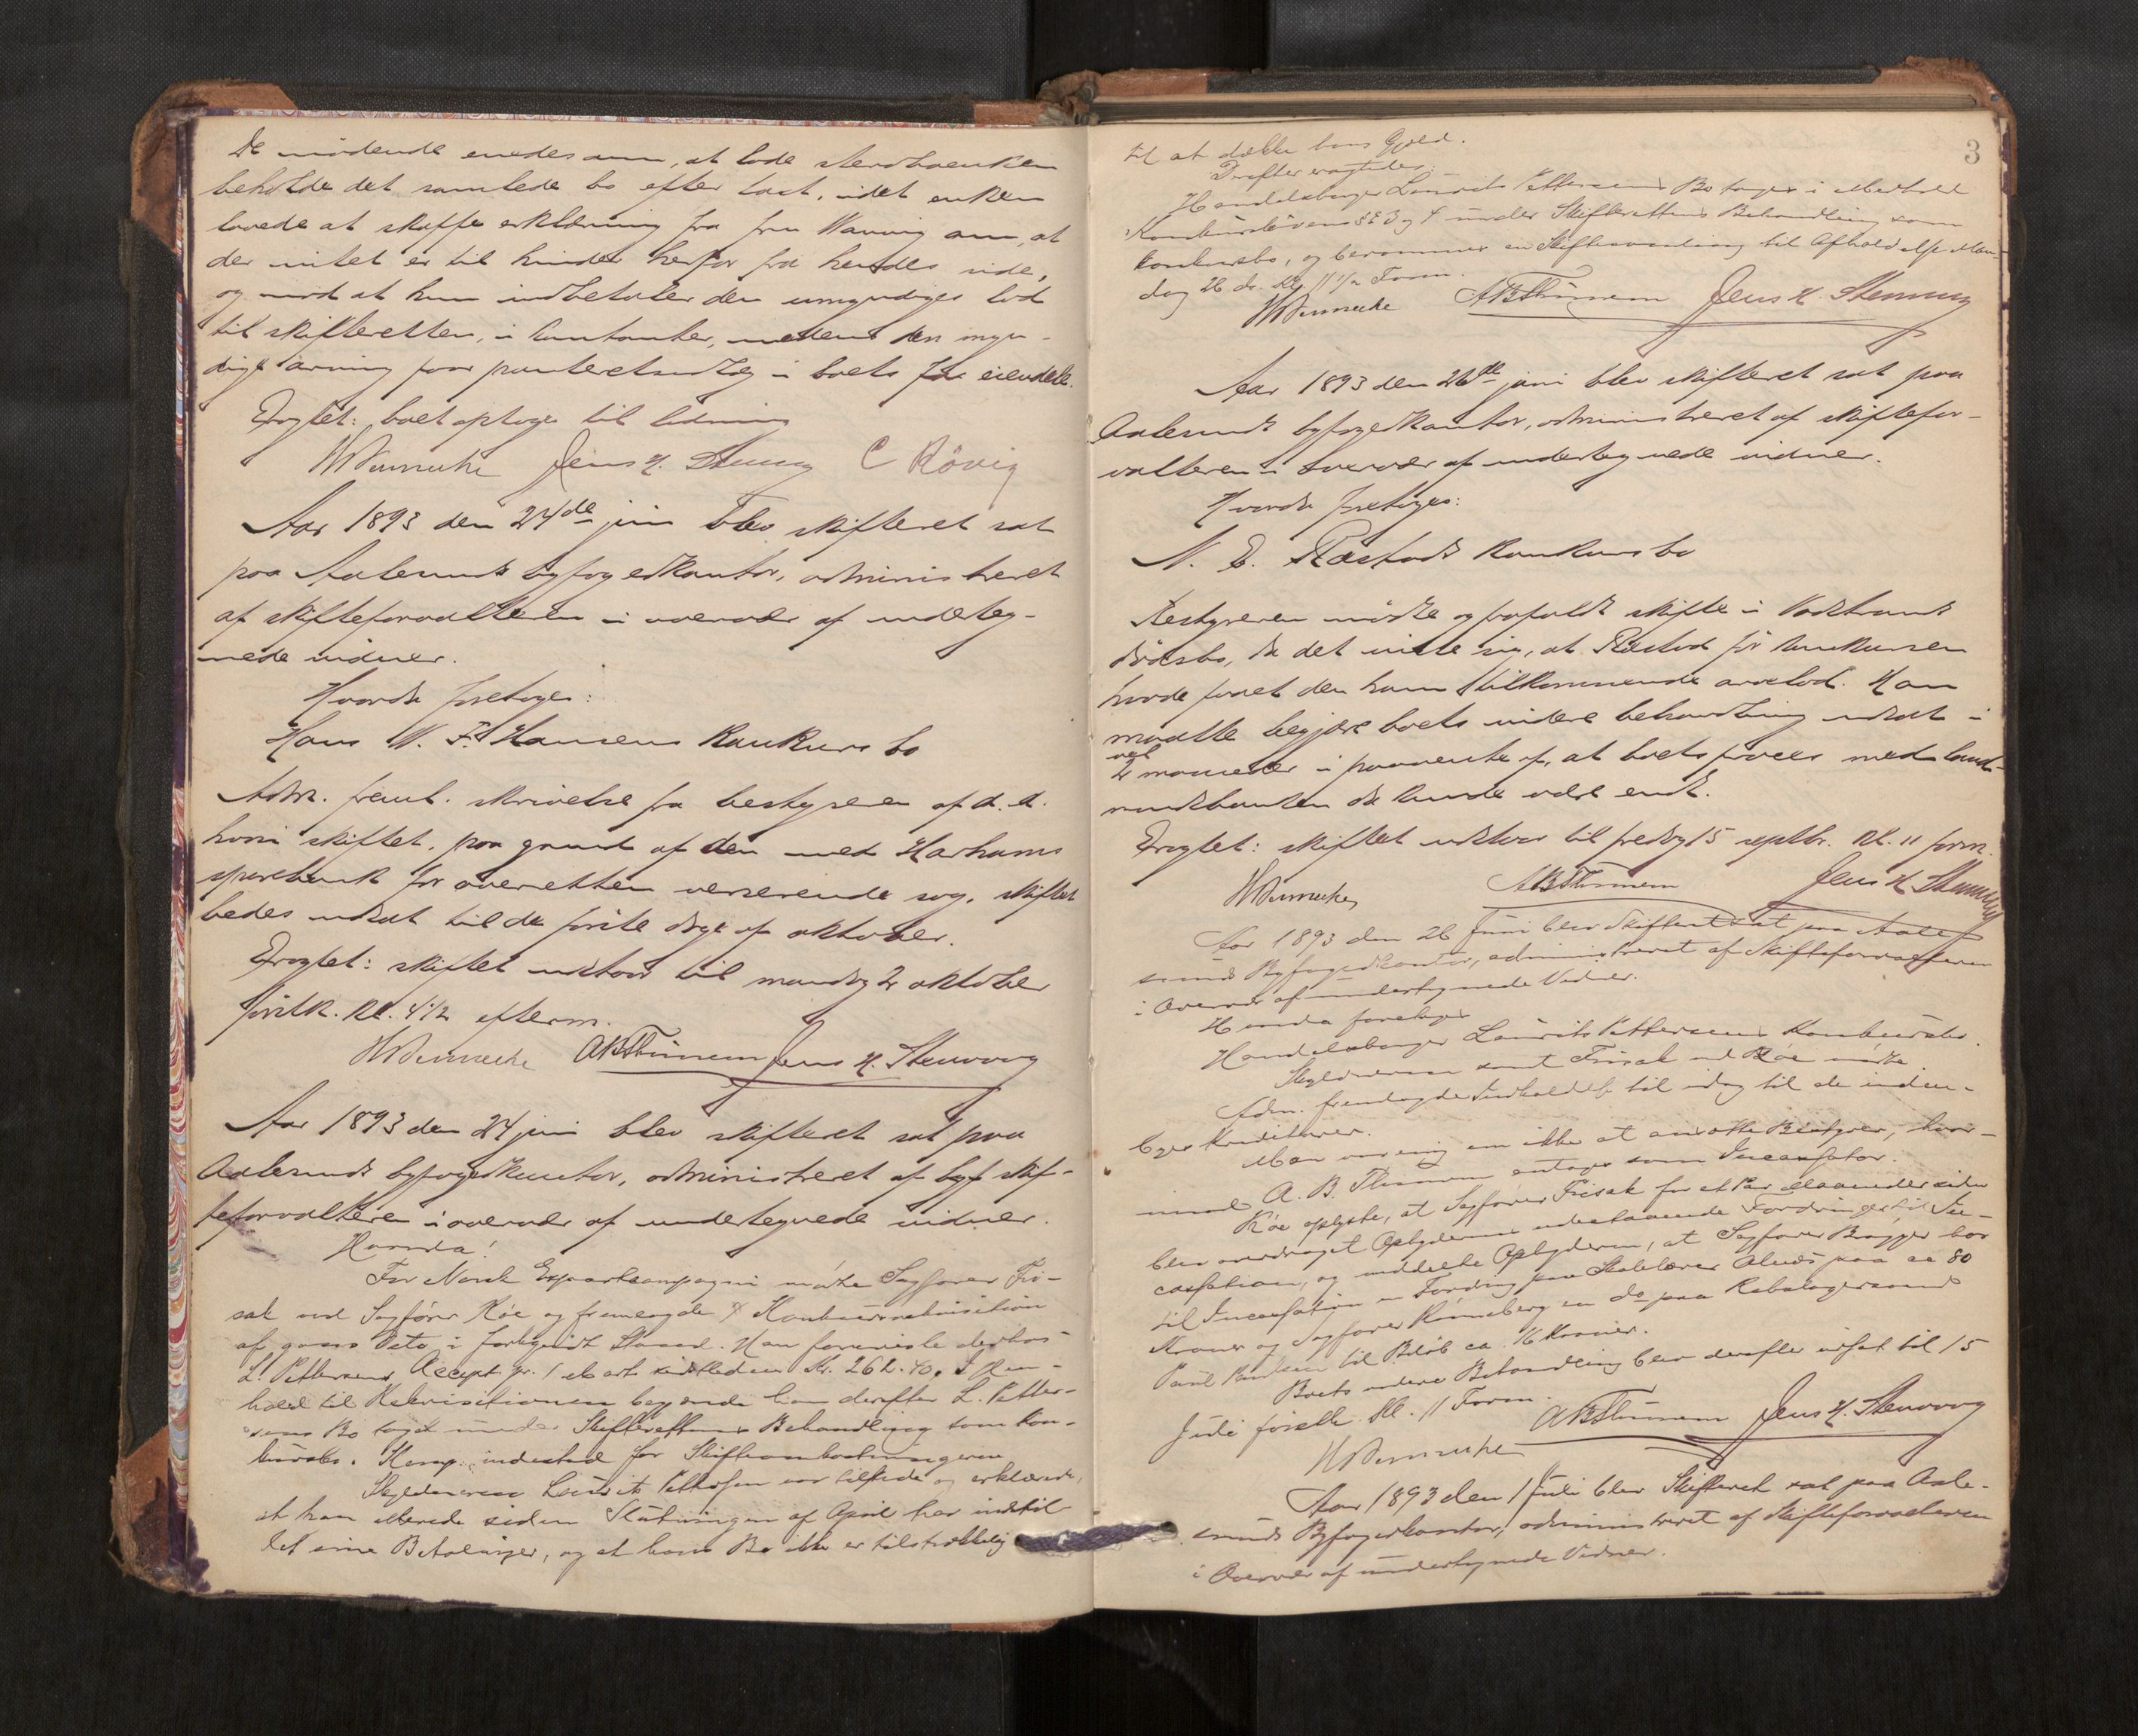 De mødende enedes om, at lade stervboenken
beholde det samlede bo efter taxt, idet enken
lovede at skaffe erklæring fra fru Warvig om, at
der intet er til hinder herfor fra hendes side,
og mod at hun indbetaler den umyndiges lod
til skifteretten, i kontanter, medens den myn-
dige arving faar panteretsudlæg i boets faste eiendele.
Eragtet: boet optages til
WDannecke Jens H. Stenvaag C Rövig
Aar 1893 den 24de juni blev skifteret sat
paa Aalesunds byfogedkontor, administreret
af skifteforvalteren i overvær af underteg-
nede vidner.
Hvorda foretoges:
Hans W. F. Hansens konkursbo
Adm. freml. skrivelse fra bestyreren af d. d.
hvori skiftet, paa grund af den med Harhams
sparebank for overretten verserende sag, skiftet
bedes udsat til de første dage af oktober.
Eragtet: skiftet udstaar til mandag 2 oktober
førstk. kl. 4 1/2 efterm.
WDannecke ABThunem Jens H. Stenvaag
Aar 1893 den 24 juni blev skifteret sat paa
Aalesunds byfogedkontor, administreret af byf skif-
teforvalteren i overvær af undertegnede vidner.
Hvorda!
For Norsk Exportcompagni mødte Sagfører Fri-
sak ved Sagfører Röe og fremlagde Konkursrekvisition
af Dato i Stand. Han foreviste derhos
L. Pettersens Accept pr. 1 Marts sidstleden Kr. 262.40. I Hen-
hold til Rekvisitionen begjærede han derefter L. Petter-
sens Bo taget under Skifterettens Behandling som Kon-
kursbo. Komp. indestod for Skifteomkostningerne
Skyldneren Laurits Pettersen var tilstede og erklærede,
at han allerede siden Slutningen af April har indstil-
let sine Betalinger, og at hans Bo ikke er tilstrækkelig
3
til at dække hans Gjeld.
Derefter eragtedes:
Handelsborger Laurits Pettersens Bo tages i Medhold
Konkurslovens §§ 3 og 4 under Skifterettens Behandling som
konkursbo, og berammes en Skiftesamling til Afholdelse Man-
dag 26 ds. Kl. 11 1/2 Form.
WDannecke ABThunem Jens H. Stenvaag
Aar 1893 den 26de juni blev skifteret sat paa
Aalesunds byfogedkontor, administreret af skiftefor-
valteren i overvær af undertegnede vidner.
Hvorda foretoges:
N. E. Ræstads konkursbo
Bestyreren mødte og frafaldt skifte i
dødsbo, da det viste sig, at Ræstad før konkursen
havde faaet den ham tilkommende arvelod. Han
maatte begjære boets videre behandling udsat i
vel
2 maaneder i paavente af, at boets proces med land-
mandsbanken da kunde være endt.
Eragtet: skiftet udstaar til fredag 15 septbr. kl. 11 form.
WDannecke ABThunem Jens H Stenvaag
Aar 1893 den 26 Juni blev Skifteret sat paa Aale-
sunds Byfogedkontor, administreret af Skifteforvalteren
i Overvær af undertegnede Vidner.
Hvorda foretoges
Handelsborger Laurits Pettersens Konkursbo.
Skyldneren samt Frisak ved Röe mødte.
Adm. fremlagde til idag til de inden-
byes Kreditorer.
Man var enig om ikke at ansætte Bestyrer, hvor-
imod A. B. Thunem antages som Incassator.
Röe oplyste, at Sagfører Frisak for et Par Maaneder siden
blev overdraget Opbyderens udestaaende Fordringer til In-
cassation, og meddelte Opbyderen, at Sagfører Brügger har
til Incassation en Fordring paa Skolelærer paa ca 80
Kroner og Sagfører Rønneberg en do paa
til Beløb ca. 16 Kroner.
Boets videre Behandling blev derefter udsat til 15
Juli førstk. Kl. 11 Form.
WDannecke ABThunem Jens H. Stenvaag
Aar 1893 den 1 Juli blev Skifteret sat paa Aale-
sunds Byfogedkontor, administreret af Skifteforvalteren
i Overvær af undertegnede Vidner.